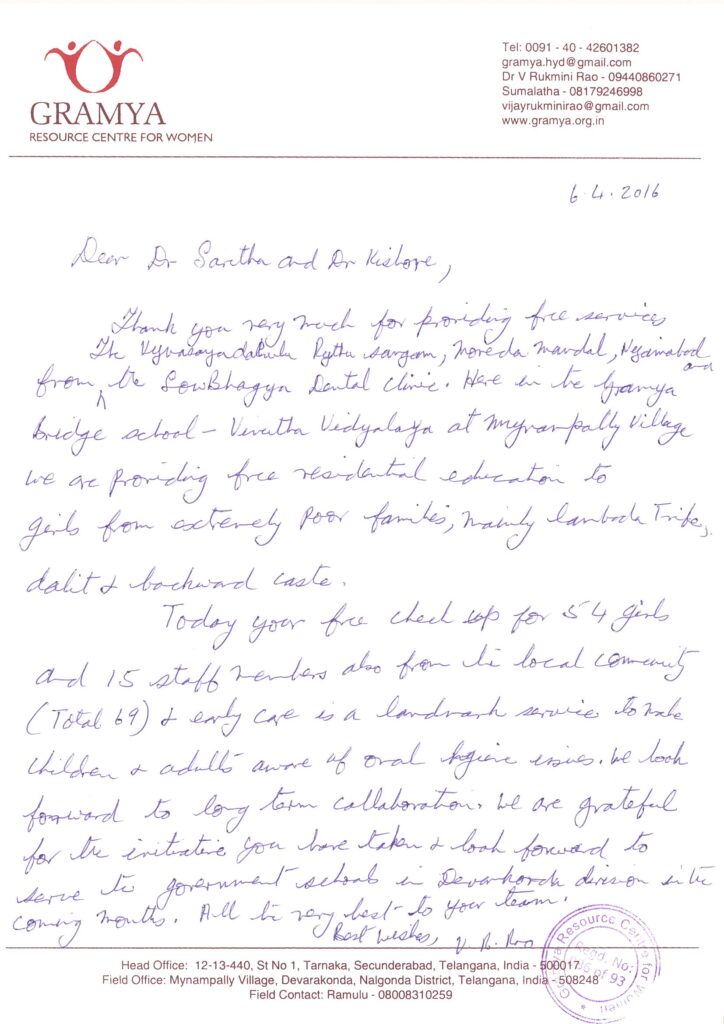 GRAMYA
RESOURCE CENTRE FOR WOMEN
Tel: 0091 - 40 - 42601382
gramya.hyd@gmail.com
Dr V Rukmini Rao - 09440860271
Sumalatha - 08179246998
vijayrukminirao@gmail.com
www.gramya.org.in
6.4.2016
Dear Dr Saritha and Dr Kishore,
Thank you very much for providing free services
The Rythu sangam, Moreda Mandal, and
from the SowBhagya Dental Clinic. Here in the Gramya
Bridge school - Vidyalaya at Mynampally Village
we are providing free residential education to
girls from extremely poor families, mainly Lambada Tribe,
dalit & backward caste.
Today your free check up for 54 girls
and 15 staff members also from the local community
(Total 69) & early care is a landmark service to make
children & adults aware of oral hygiene issues. We look
forward to long term collaboration. We are grateful
for the initiative you have taken & look forward to
serve the government schools in Devarkonda division in the
coming months. All the very best to your team.
Best wishes, V. R. Rao
Gramya Resource Centre for Women
Regd. No:
of 93
Head Office: 12-13-440, St No 1, Tarnaka, Secunderabad, Telangana, India - 500017
Field Office: Mynampally Village, Devarakonda, Nalgonda District, Telangana, India - 508248
Field Contact: Ramulu - 08008310259